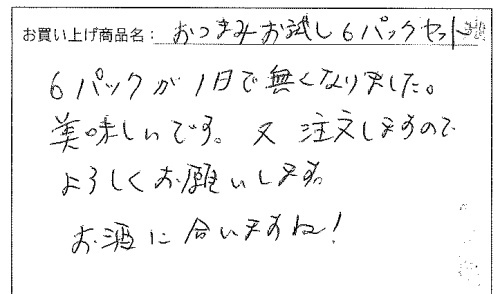 お買い上げ商品名: おつまみお試し6パックセット
6パックが1日で無くなりました。
美味しいです。又 注文しますので
よろしくお願いします。
お酒に合いますね!